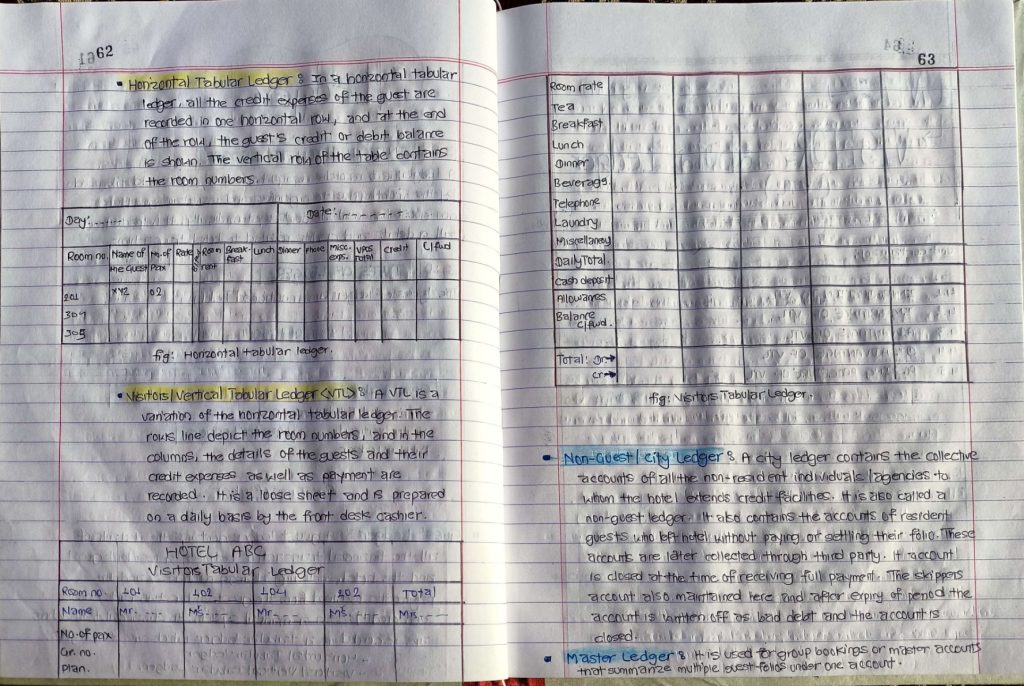 62
• Horizontal Tabular Ledger : In a horizontal tabular
ledger, all the credit expenses of the guest are
recorded in one horizontal row, and at the end
of the row, the guest's credit or debit balance
is shown. The vertical row of the table contains
the room numbers.
Day:...... Date:-------
Room no. Name of the Guest No. of Pax Rate Room rent Break-fast Lunch Dinner Phone Misc. exps. VPOS Total Credit C/fwd
201 XYZ 02
304
305
fig: Horizontal tabular ledger.
• Visitors/Vertical Tabular Ledger <VTL> : A VTL is a
variation of the horizontal tabular ledger. The
rows line depict the room numbers, and in the
columns, the details of the guests and their
credit expenses as well as payment are
recorded. It is a loose sheet and is prepared
on a daily basis by the front desk cashier.
HOTEL ABC
Visitors Tabular Ledger
Room no. 101 102 104 202 Total
Name Mr. --- Ms. --- Mr. --- Ms. --- Mr. ---
No. of pax
Gr. no.
Plan.
63
Room rate
Tea
Breakfast
Lunch
Dinner
Beverage
Telephone
Laundry
Miscellaney
Daily Total.
Cash deposit
Allowanes
Balance
C/fwd.
Total: Dr→
Cr→
fig: Visitors Tabular Ledger.
• Non-Guest / City Ledger : A city ledger contains the collective
accounts of all the non-resident individuals /agencies to
whom the hotel extends credit facilities. It is also called a
non-guest ledger. It also contains the accounts of resident
guests who left hotel without paying or settling their folio. These
accounts are later collected through third party. If account
is closed at the time of receiving full payment. The skippers
account also maintained here and after expiry of period the
account is written off as bad debt and the account is
closed.
• Master Ledger : It is used for group bookings or master accounts
that summarize multiple guest folios under one account.